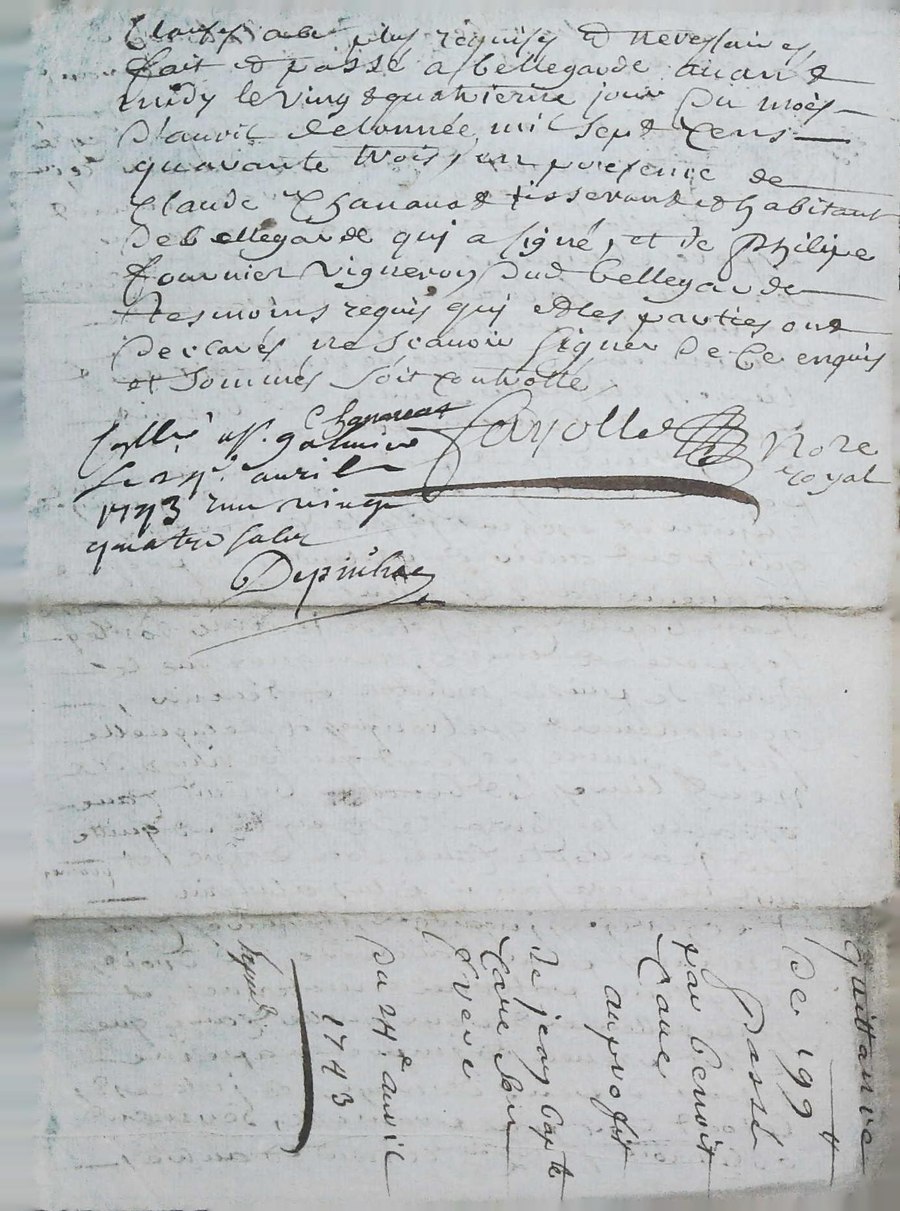 Clauses a ce plus requises & necessaires,
fait & passé a bellegarde auant
midy le vingt & quatrieme jour du mois
d'auril de lannée mil sept cens
quarante trois, en presence de
Claude Chanaud tisserand & habitant
de bellegarde qui a signé, et de Philipe
fournier vigneron dud bellegarde
tesmoins requis qui & les parties ont
declarés ne scauoir signer de ce enquis
et sommés soit controllé
Chanaud
Fayolle Nore
royal
Collé a St. galmier
le 24e. auril
1743 recu vingt
quatre sols
Depinhac
quittance
de 199 ₶
Passé
par benoit
Caue
au profit
de jean bapte
Caue son
frere
du 24e auril
1743